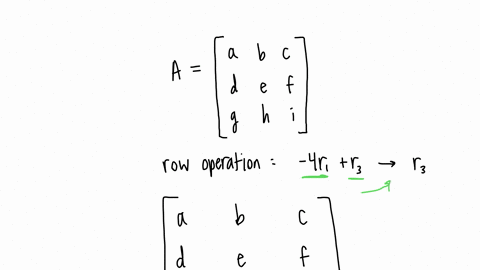 A = [ a b c
d e f
g h i ]
row operation : -4r₁ + r₃ → r₃
[ a b c
d e f